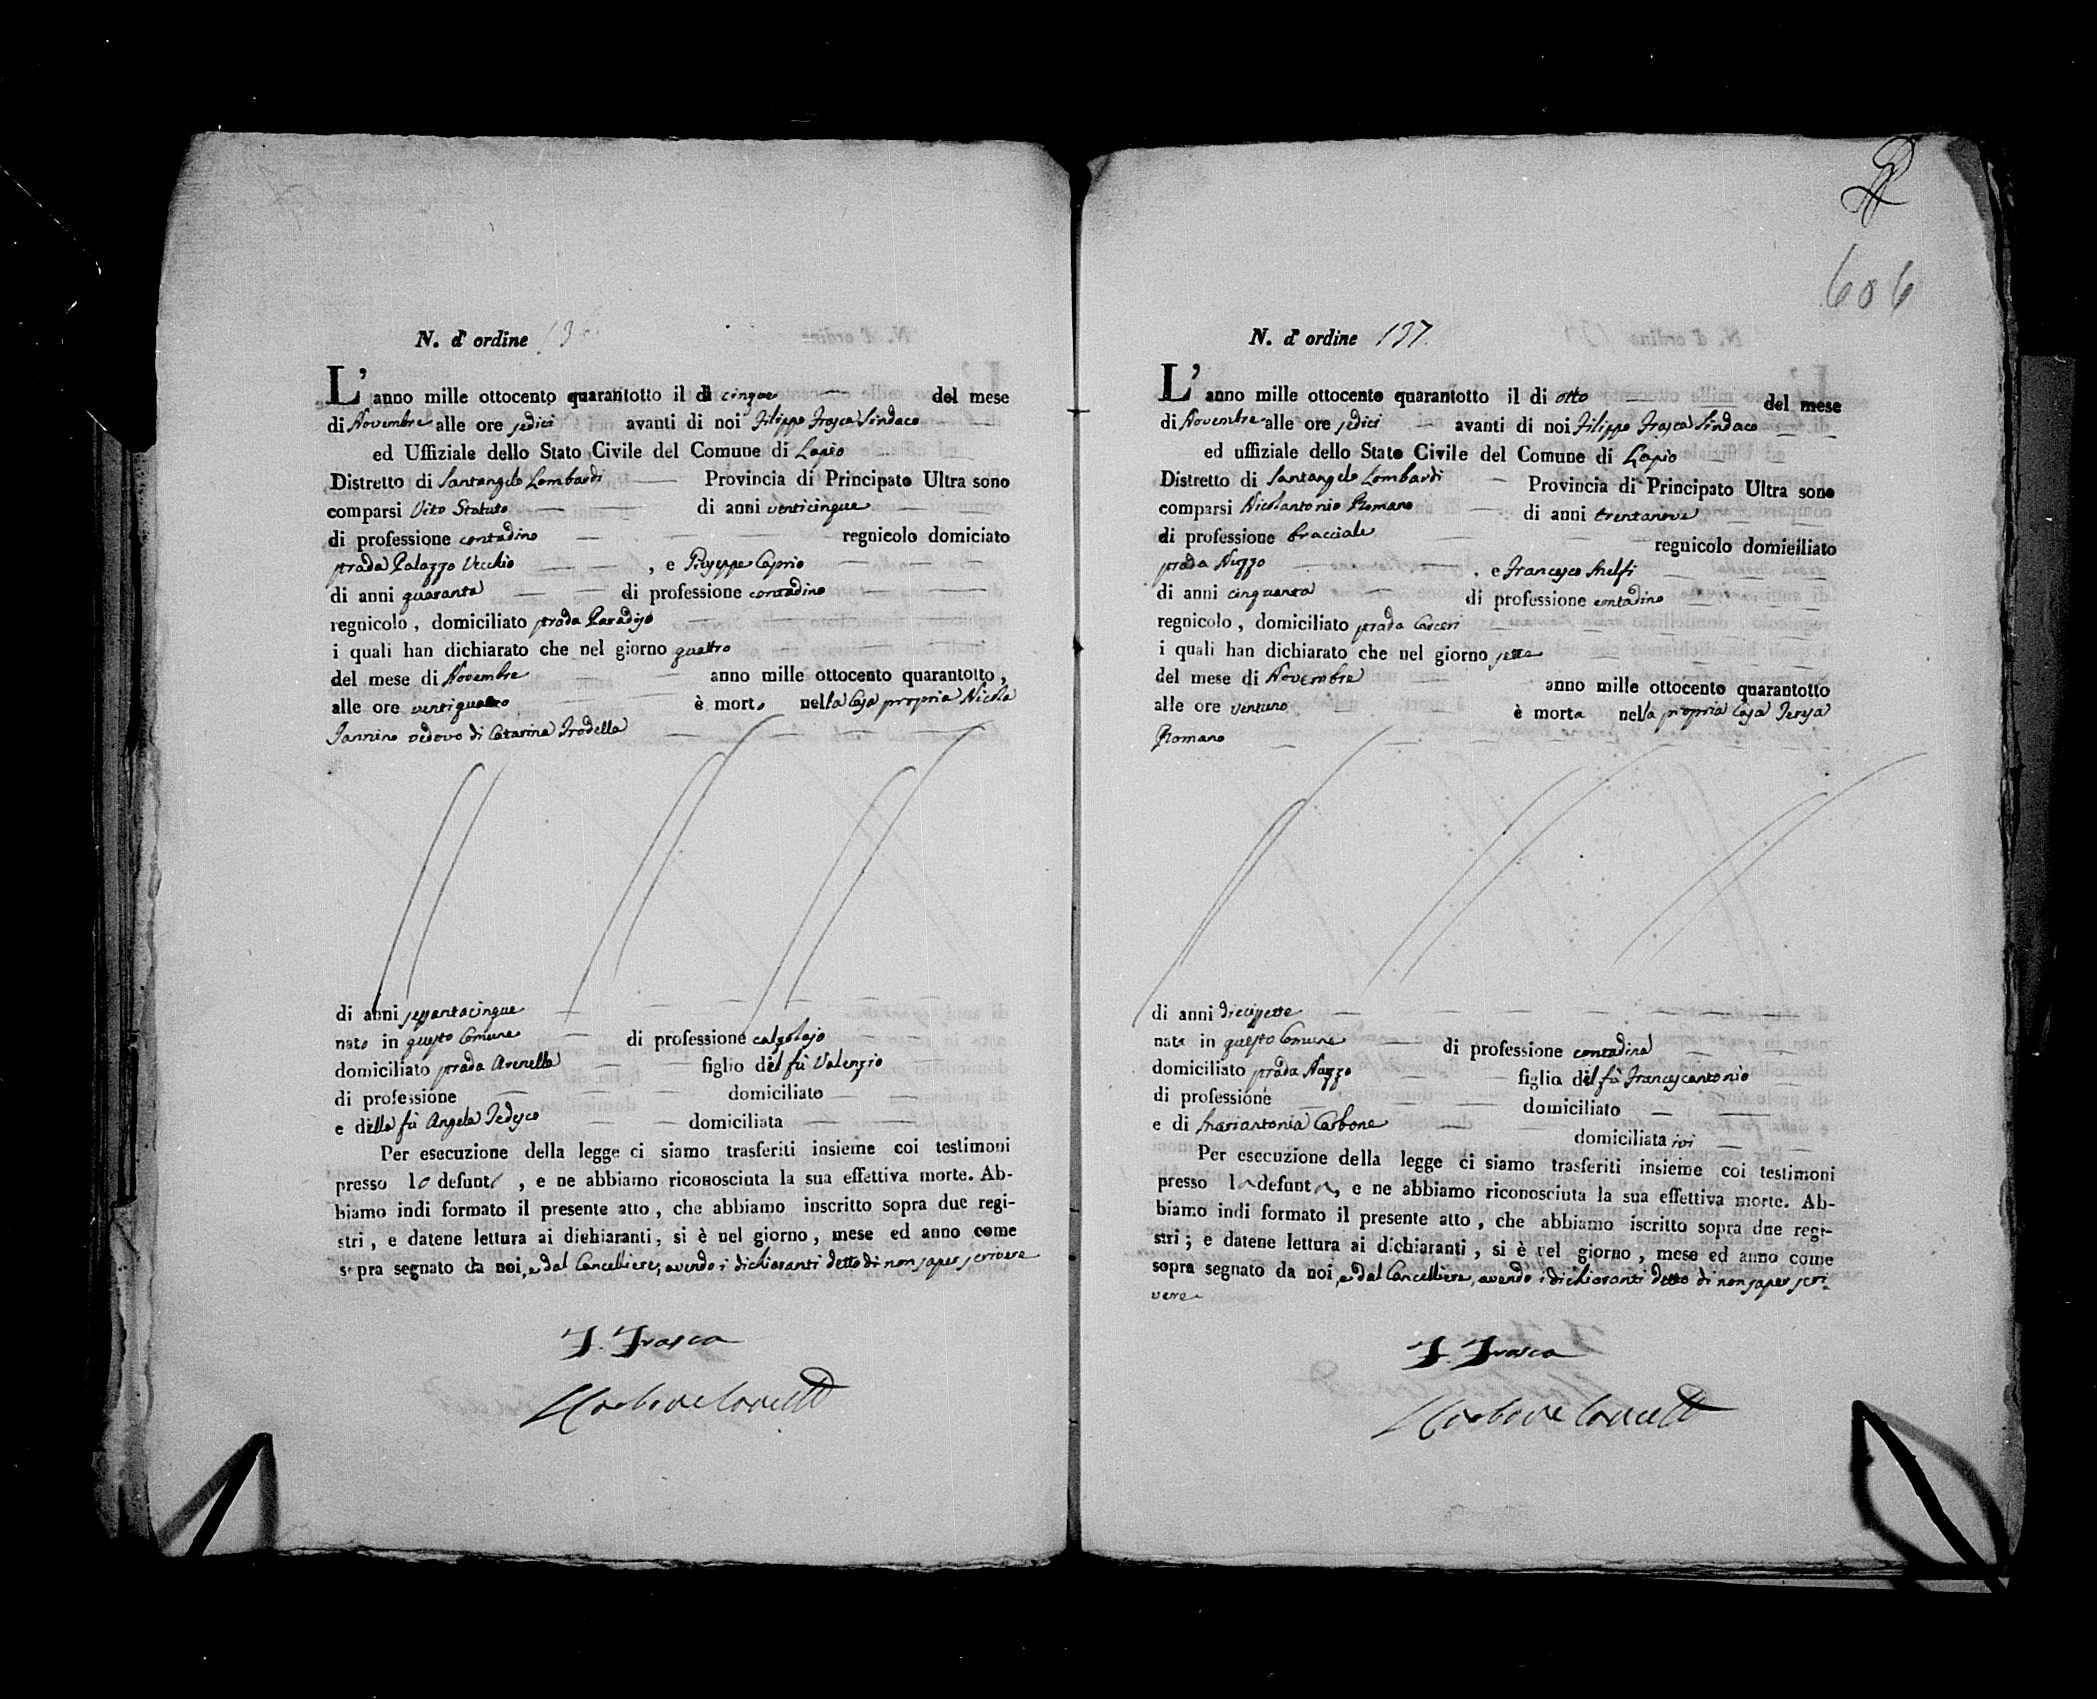 N. d' ordine 136
L' anno mille ottocento quarantotto il dì cinque del mese
di Novembre alle ore sedici avanti di noi Filippo Frasca Sindaco
ed Uffiziale dello Stato Civile del Comune di Lapio
Distretto di Santangelo Lombardi Provincia di Principato Ultra sono
comparsi Vito Statuto di anni venticinque
di professione contadino regnicolo domiciato
strada Palazzo Vecchio , e Giuseppe Caprio
di anni quaranta di professione contadino
regnicolo , domiciliato strada Paradiso
i quali han dichiarato che nel giorno quattro
del mese di Novembre anno mille ottocento quarantotto ,
alle ore ventiquattro è morto nella Casa propria Nicola
Iannino vedovo di Catarina Trodella
di anni sessantacinque
nato in questo Comune di professione calzolajo
domiciliato strada Arenella figlio del fù Valenzio
di professione domiciliato
e della fù Angela Tedesco domiciliata
Per esecuzione della legge ci siamo trasferiti insieme coi testimoni
presso lo defunto , e ne abbiamo riconosciuta la sua effettiva morte. Ab-
biamo indi formato il presente atto , che abbiamo inscritto sopra due regi-
stri , e datene lettura ai dichiaranti, si è nel giorno , mese ed anno come
sopra segnato da noi, e dal Cancelliere, avendo i dichiaranti detto di non saper scrivere
F. Frasca
606
N. d' ordine 137.
L' anno mille ottocento quarantotto il di otto del mese
di Novembre alle ore sedici avanti di noi Filippo Frasca Sindaco
ed uffiziale dello Stato Civile del Comune di Lapio
Distretto di Santangelo Lombardi Provincia di Principato Ultra sono
comparsi Nicolantonio Romano di anni trentanove
di professione bracciale regnicolo domiciliato
strada Nuzzo , e Francesco Melfi
di anni cinquanta di professione contadino
regnicolo , domiciliato strada Carceri
i quali han dichiarato che nel giorno sette
del mese di Novembre anno mille ottocento quarantotto
alle ore ventuno è morta nella propria Casa Teresa
Romano
di anni diecissette
nata in questo Comune di professione contadina
domiciliato strada Nuzzo figlia del fù Francescantonio
di professione domiciliato
e di Mariantonia Carbone domiciliata ivi
Per esecuzione della legge ci siamo trasferiti insieme coi testimoni
presso la defunta, e ne abbiamo riconosciuta la sua effettiva morte. Ab-
biamo indi formato il presente atto , che abbiamo iscritto sopra due regi-
stri ; e datene lettura ai dichiaranti , si è nel giorno , mese ed anno come
sopra segnato da noi, e dal Cancelliere, avendo i dichiaranti detto di non saper scri-
vere
F. Frasca